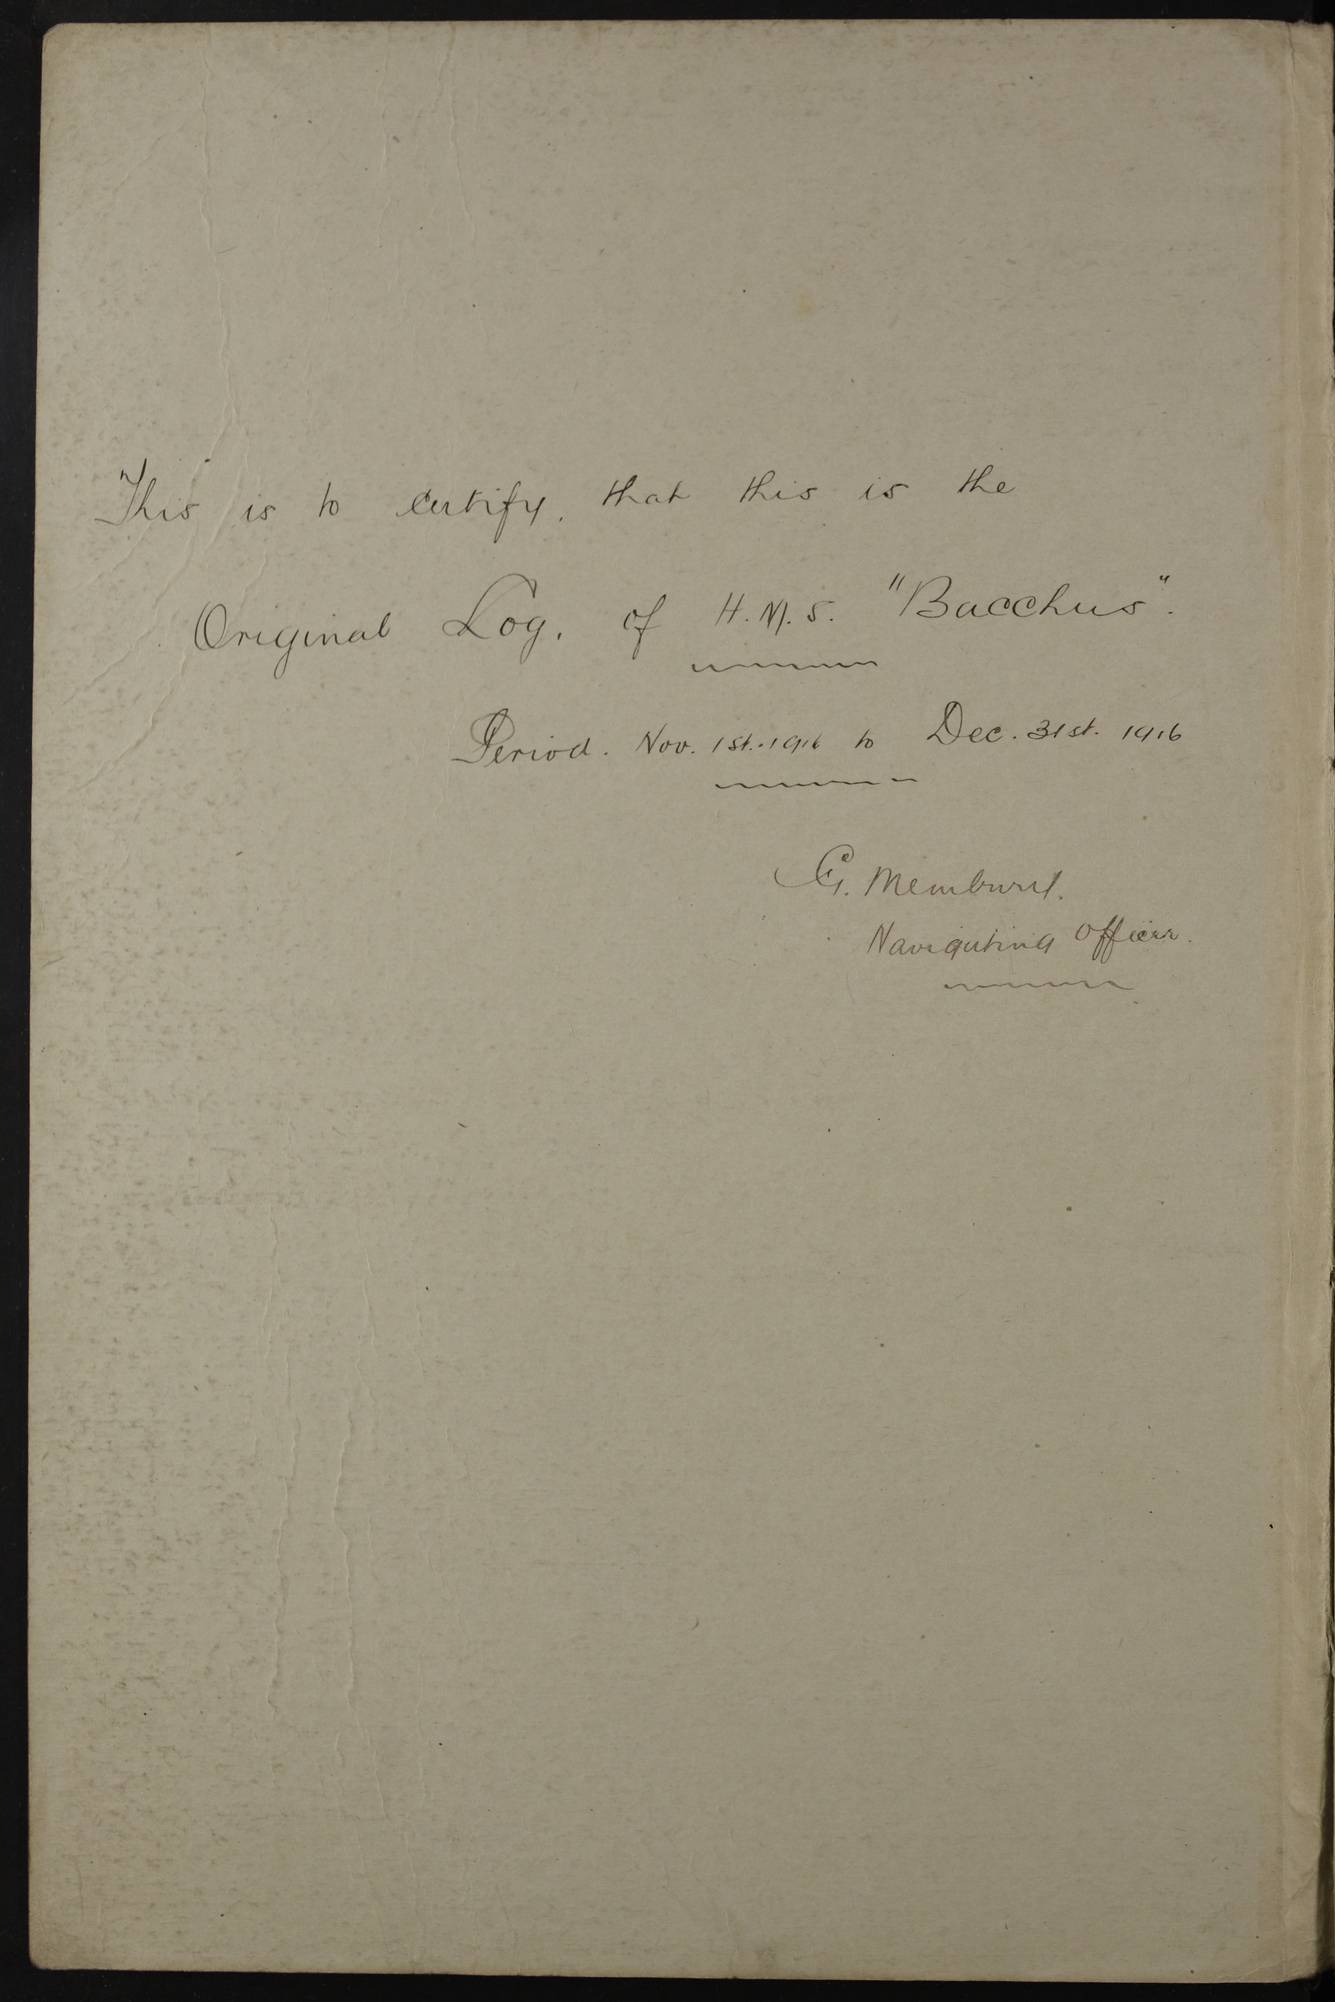 This is to certify, that this is the
Original Log. of H.M.S. "Bacchus".
Period. Nov. 1st. 1916 to Dec. 31st. 1916
G.
Navigating Officer.